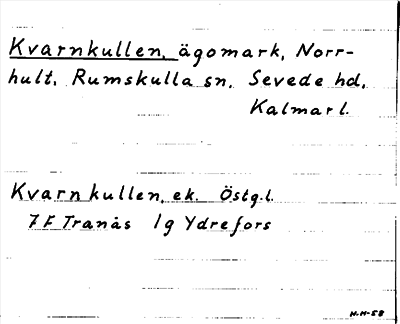 Kvarnkullen, ägomark, Norr-
hult, Rumskulla sn, Sevede hd,
Kalmar l.
Kvarnkullen, ek. Östg.l.
7 F Tranås 1g Ydrefors
H.H-58